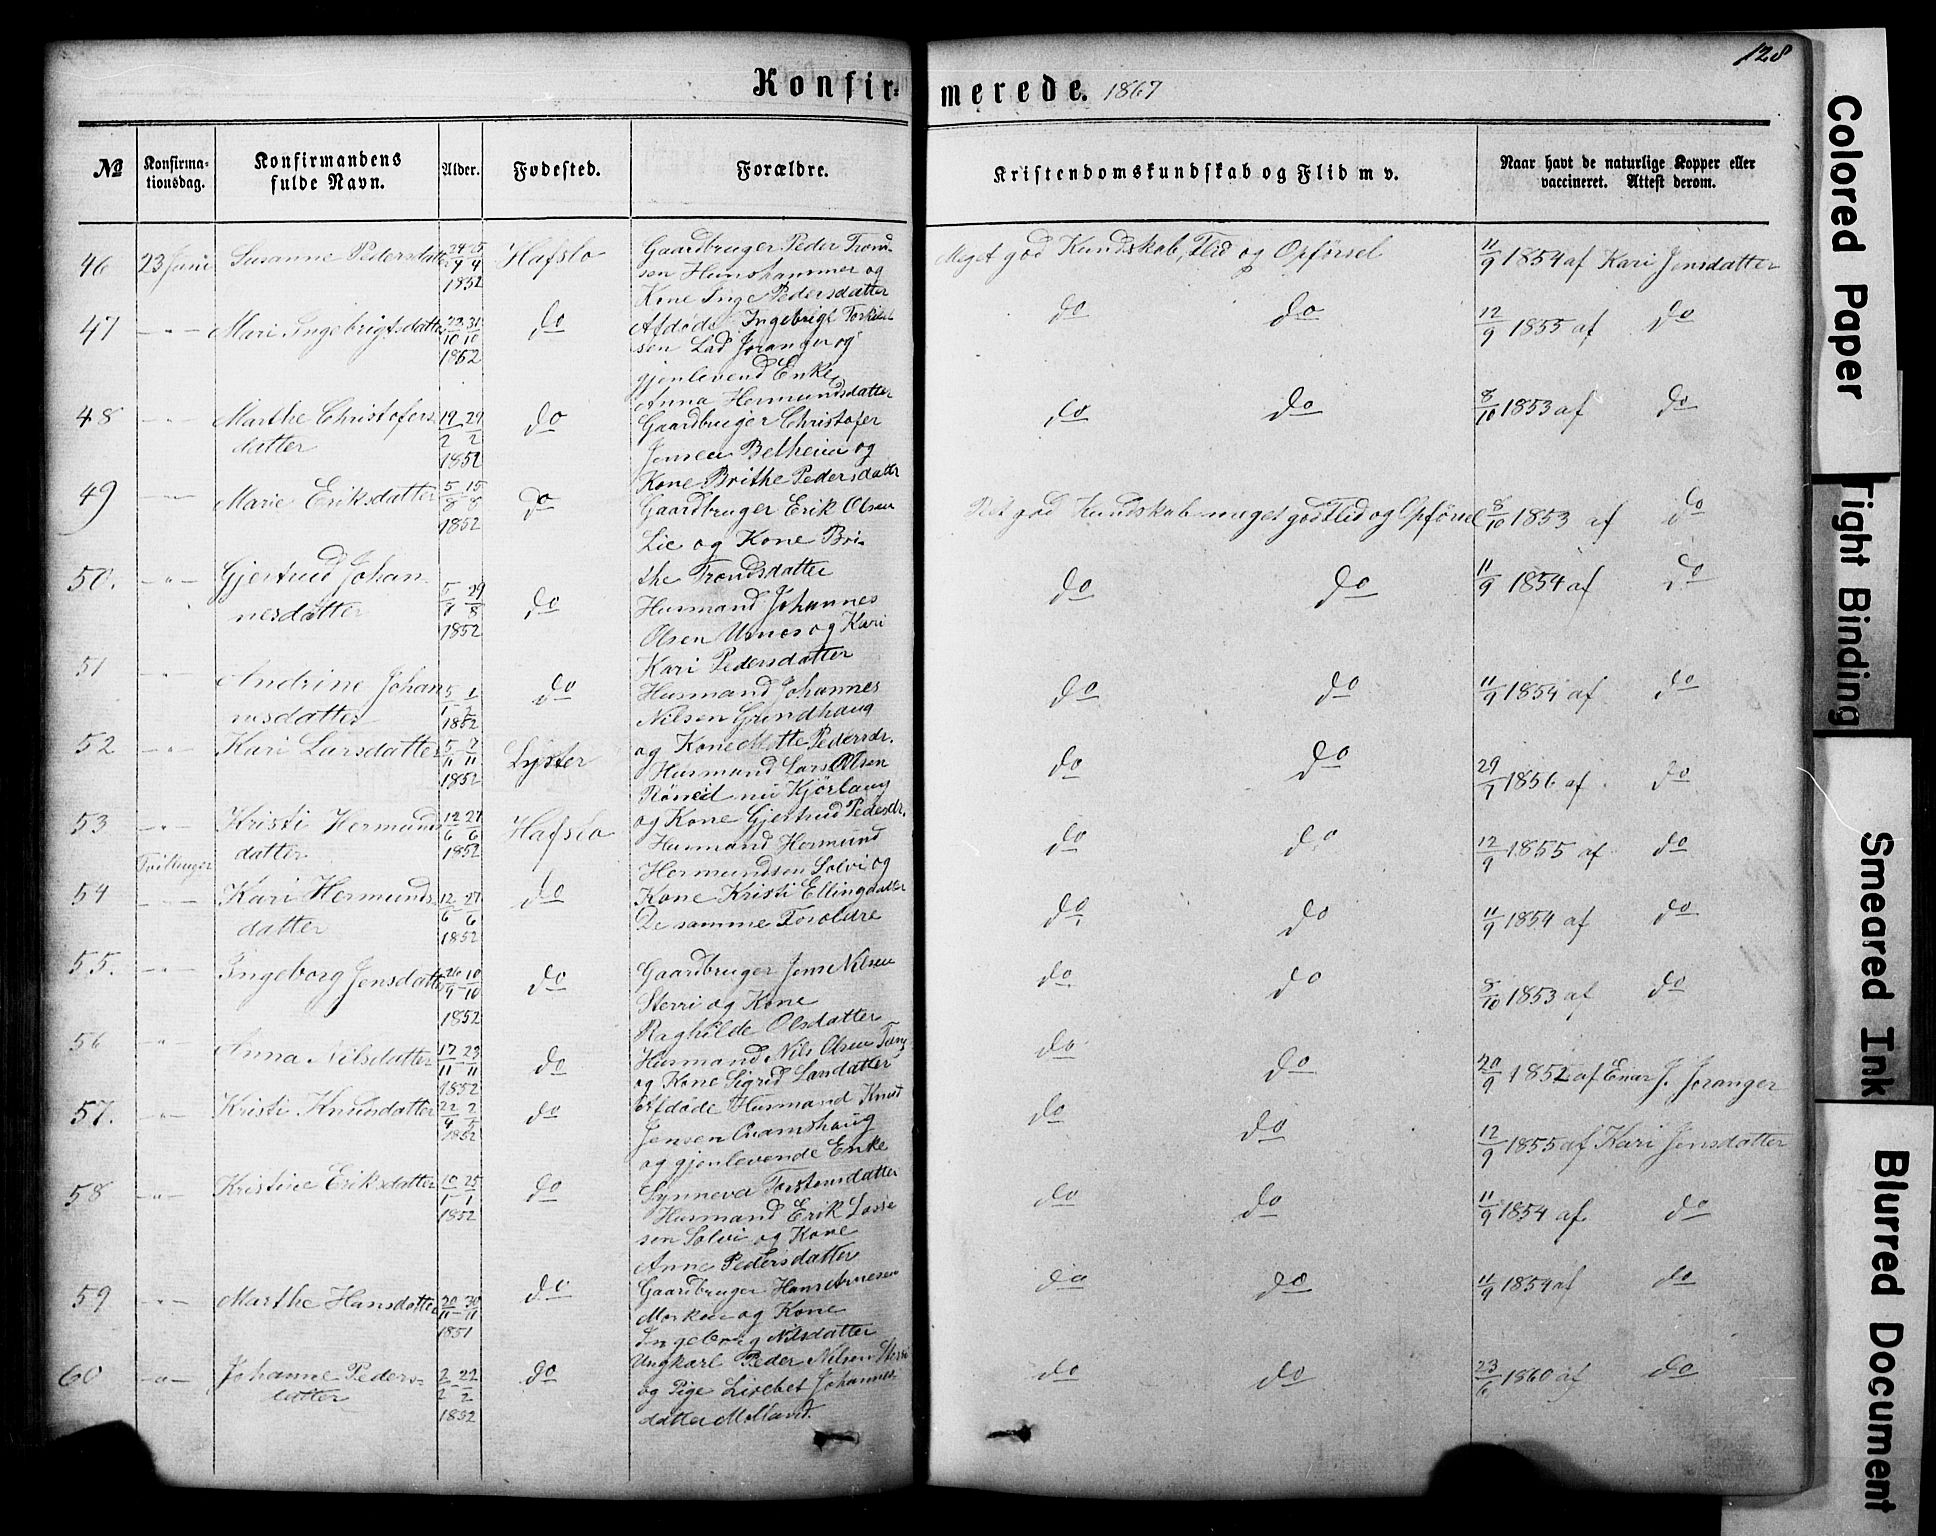 128
Konfirmerede. 1867
No
Konfirmationsdag.
Konfirmandens fulde Navn.
Alder.
Fødested.
Forældre.
Kristendomskundskab og Flid m v.
Naar havt de naturlige Kopper eller vaccineret. Attest derom.
46 23 Juni Susanne Pedersdatter 1852 Hafslo
Gaardbruger Peder Trond-
sen Hunshammer og
Kone Inge Pedersdatter
Meget god Kundskab, Flid og Opførsel 11/9 1854 af Kari Jensdatter
47 -"- Mari Ingebrigtsdatter 23/10 31/10 1852 do
Afdøde Ingebrigt Torkild-
sen Lad Joranger og
gjenlevend Enke
Anna Hermundsdatter
do do 12/9 1855 af do
48 -"- Marthe Christofers
datter 19/2 29/2 1852 do
Gaardbruger Christofer
Jensen Betheim og
Kone Brithe Pedersdatter
do do 8/10 1853 af do
49 -"- Marie Eriksdatter 5/8 15/8 1852 do
Gaardbruger Erik Olsen
Lie og Kone Bri-
the Trondsdatter
god Kundskab meget god Flid og Opførsel 8/10 1853 af do
50. -"- Gjertrud Johan-
nesdatter 29/8 1852 do
Husmand Johannes
Olsen Urnes og Kari
Kari Pedersdatter
do do 11/9 1854 af do
51 -"- Andrine Johan
nesdatter 1852 do
Husmand Johannes
Nilsen Grindhaug
og Kone Mette Pedersdr.
do do 11/9 1854 af do
52 -"- Kari Larsdatter 5/11 7/11 1852 Lyster
Husmand Lars Olsen
Røneid nu Kjørlaug
og Kone Gjertrud Pedersdr.
do do 29/7 1856 af do
53 -"- Kristi Hermunds
datter 12/6 27/6 1852 Hafslo
Tvillinger
Husmand Hermund
Hermundsen Solvi og
Kone Kristi Ellingdatter
do do 12/9 1855 af do
54 -"- Kari Hermunds
datter 12/6 27/6 1852 do
De samme Foroldre
do do 11/9 1854 af do
55. -"- Ingeborg Jensdatter 26/9 10/10 1852 do
Gaardbruger Jens Nilsen
Sterri og Kone
Raghilde Olsdatter
do do 8/10 1853 af do
56 " Anna Nilsdatter 17/11 23/11 1852 do
Husmand Nils Olsen Tang
og Kone Sigrid Larsdatter
do do 20/9 1852 af Enar J. Joranger
57. -"- Kristi Knudsdatter 22/4 2/5 1852 do
Afdøde Husmand Knud
Jensen Qvamshaug
og gjenlevende Enke
Synneva Torstensdatter
do do 12/9 1855 af Kari Jensdatter
58 -"- Kristine Eriksdatter 10/1 25/1 1852 do
Husmand Erik Lasse
sen Solvi og Kone
Anne Pedersdatter
do do 11/9 1854 af do
59 -"- Marthe Hansdatter 20/11 30/11 1851 do
Gaardbruger Hans Arnesen
Morken og Kone
Ingeborg Nilsdatter
do do 11/9 1854 af do
60 -"- Johanne Peders-
datter 2/2 22/2 1852 do
Ungkarl Peder Nilsen Sterri
og Pige Lisebet Johannes
datter Molland.
do do 23/6 1860 af do
Colored Paper
Tight Binding
Smeared Ink
Blurred Document